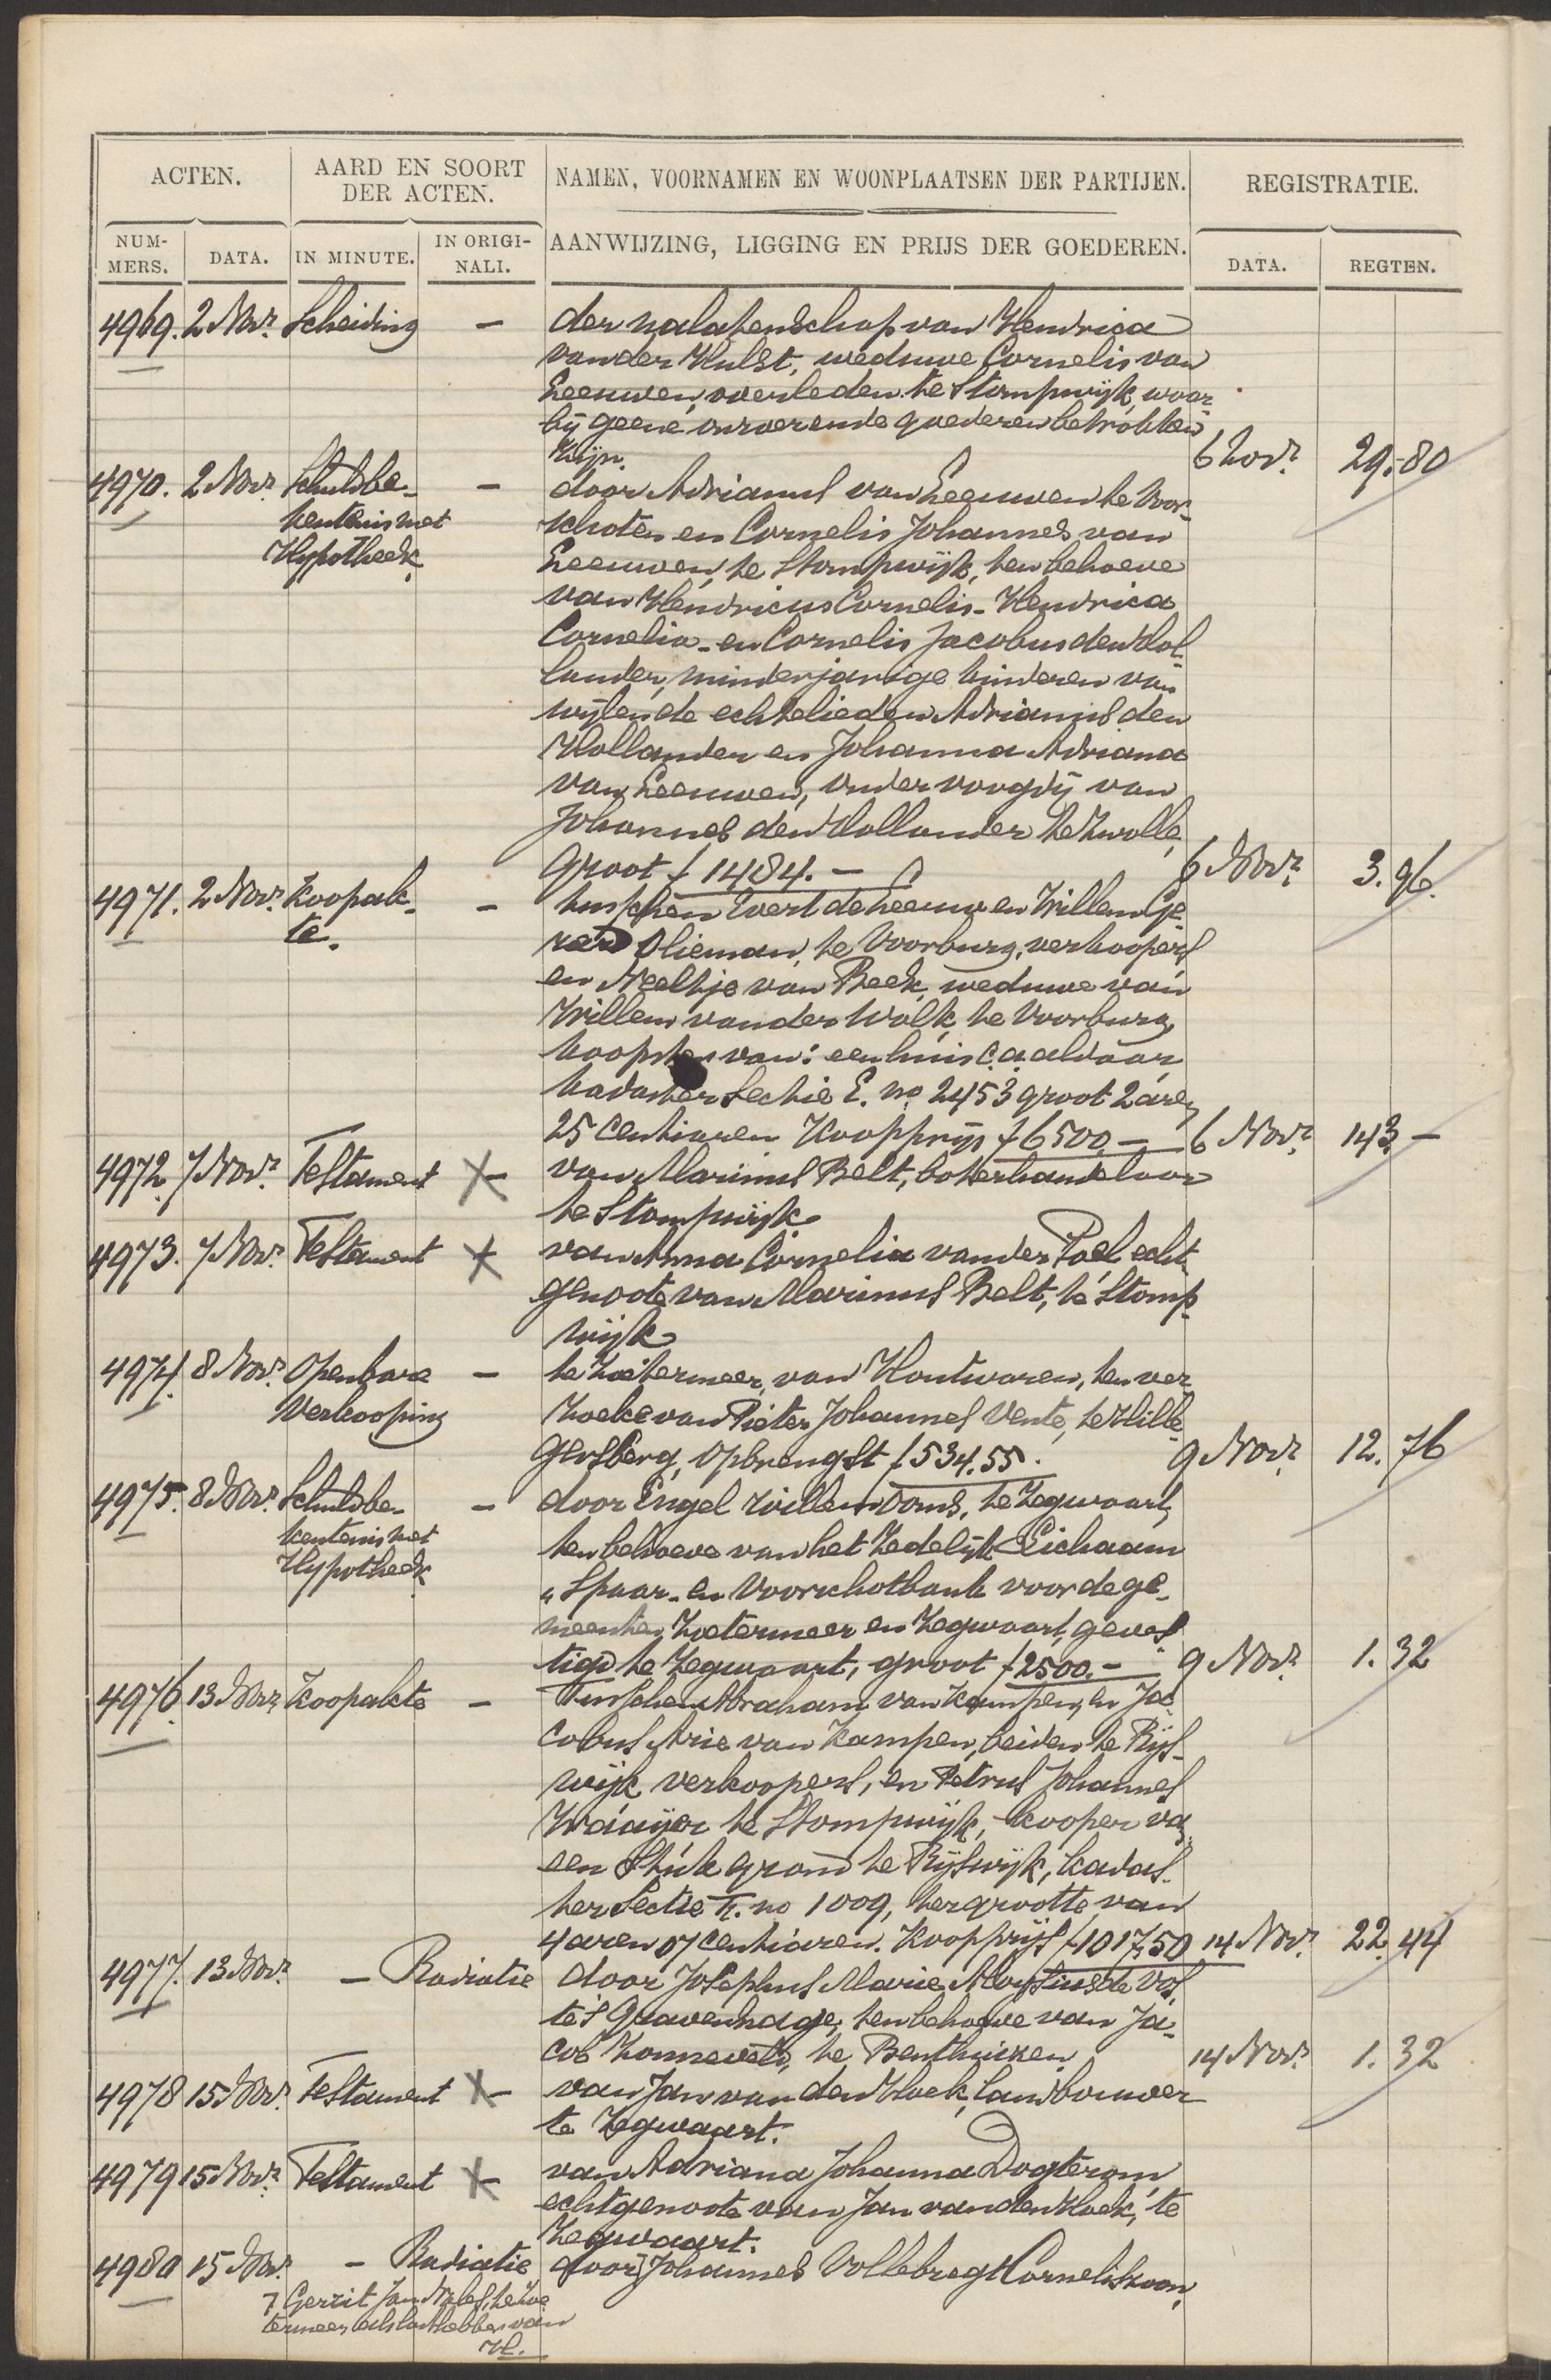 ACTEN.
AARD EN SOORT
DER ACTEN.
NAMEN, VOORNAMEN EN WOONPLAATSEN DER PARTIJEN.
REGISTRATIE.
NUM-
MERS.
DATA.
IN MINUTE.
IN ORIGI-
NALI.
AANWIJZING, LIGGING EN PRIJS DER GOEDEREN.
DATA.
REGTEN.
4969. 2 Novr. Scheiding – der nalatenschap van Hendrica
van der Hulst, weduwe Cornelis van
Leeuwen, overleden te Stompwijk, waar-
bij geene onroerende goederen betrokken
zijn. 6 Novr. 29.80
4970. 2 Novr. Schuldbe- – door Adrianus van Leeuwen te Voor-
kentenis met schoten en Cornelis Johannes van
Hypotheek. Leeuwen, te Stompwijk, ten behoeve
van Hendricus Cornelis- Hendrica
Cornelia- en Cornelis Jacobus den Hol-
lander, minderjarige kinderen van
wijlen de echtelieden Adrianus den
Hollander en Johanna Adriana
van Leeuwen, onder voogdij van
Johannes den Hollander te Zwolle,
groot f 1484.- 6 Novr. 3.96.
4971. 2 Novr. Koopak- – tusschen Evert de Leeuw en Willem Ge-
te. rard Olieman, te Voorburg, verkoopers
en Neeltje van Beek, weduwe van
Willem van der Valk, te Voorburg,
koopster van: een huis c.a. aldaar
kadaster Sectie E. no 2453 groot 2 aren
25 centiaren Koopprijs f 6500.- 6 Novr. 143 –
4972. 7 Novr. Testament X– van Marinus Belt, boterhandelaar
te Stompwijk.
4973. 7 Novr. Testament X van Anna Cornelia van der Poel echt-
genoote van Marinus Belt, te Stomp-
wijk.
4974. 8 Novr. Openbare – te Zoetermeer, van Houtwaren, ten ver-
Verkooping zoeke van Pieter Johannes Vente, te Hille-
gersberg, Opbrengst f 534.55. 9 Novr. 12.76
4975. 8 Novr. Schuldbe- – door Engel Willem Boms, te Zegwaart,
kentenis met ten behoeve van het Zedelijk Lichaam
Hypotheek. "Spaar- en Voorschotbank voor de ge-
meenten Zoetermeer en Zegwaart, geves-
tigd te Zegwaart, groot f 2500.- 9 Novr. 1.32
4976. 13 Novr. Koopakte – Tusschen Abraham van Kampen, en Ja-
cobus Arie van Kampen, beiden te Rijs-
wijk verkoopers, en Petrus Johannes
Waaijer te Stompwijk, kooper van
een Stuk grond te Rijswijk, kadas-
ter Sectie no 1009, ter grootte van
4 aren 07 centiaren. Koopprijs f 1017,50 14 Novr. 22.44
4977. 13 Novr. – Radiatie door Josephus Marie Aloysius de Vos,
te 's Gravenhage, ten behoeve van Ja-
cob Zonneveld, te Benthuizen. 14 Novr. 1.32
4978 15 Novr. Testament X– van Jan van den Hoek, landbouwer
te Zegwaart.
4979 15 Novr. Testament X– van Adriana Johanna Dogterom,
echtgenoote van Jan van den Hoek, te
Zegwaart.
4980 15 Novr. – Radiatie door Johannes Vollebregt Corneliszoon,
Gerrit Jan te Zoe-
termeer als lasthebber van